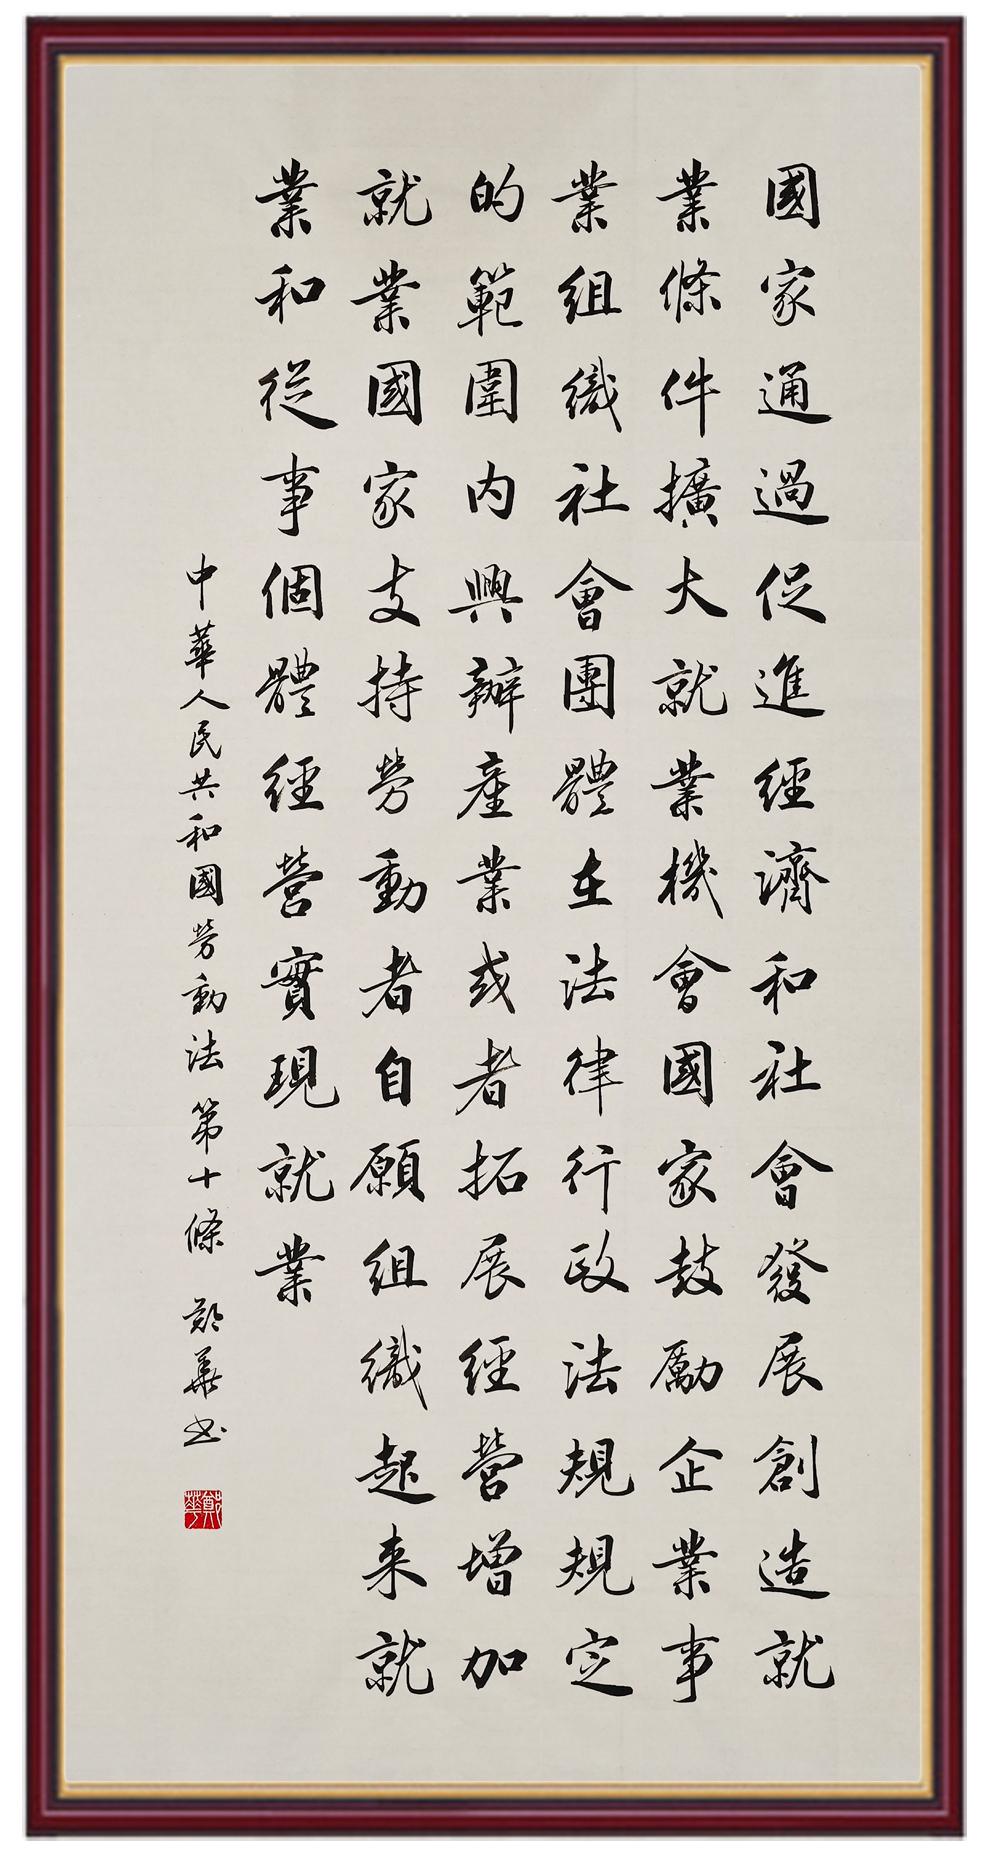 國家通過促進經濟和社會發展創造就
業條件擴大就業機會國家鼓勵企業事
業組織社會團體在法律行政法規規定
的範圍内興辦產業或者拓展經營增加
就業國家支持勞動者自願組織起来就
業和從事個體經營實現就業
中華人民共和國勞動法第十條 鄭華书
鄭華